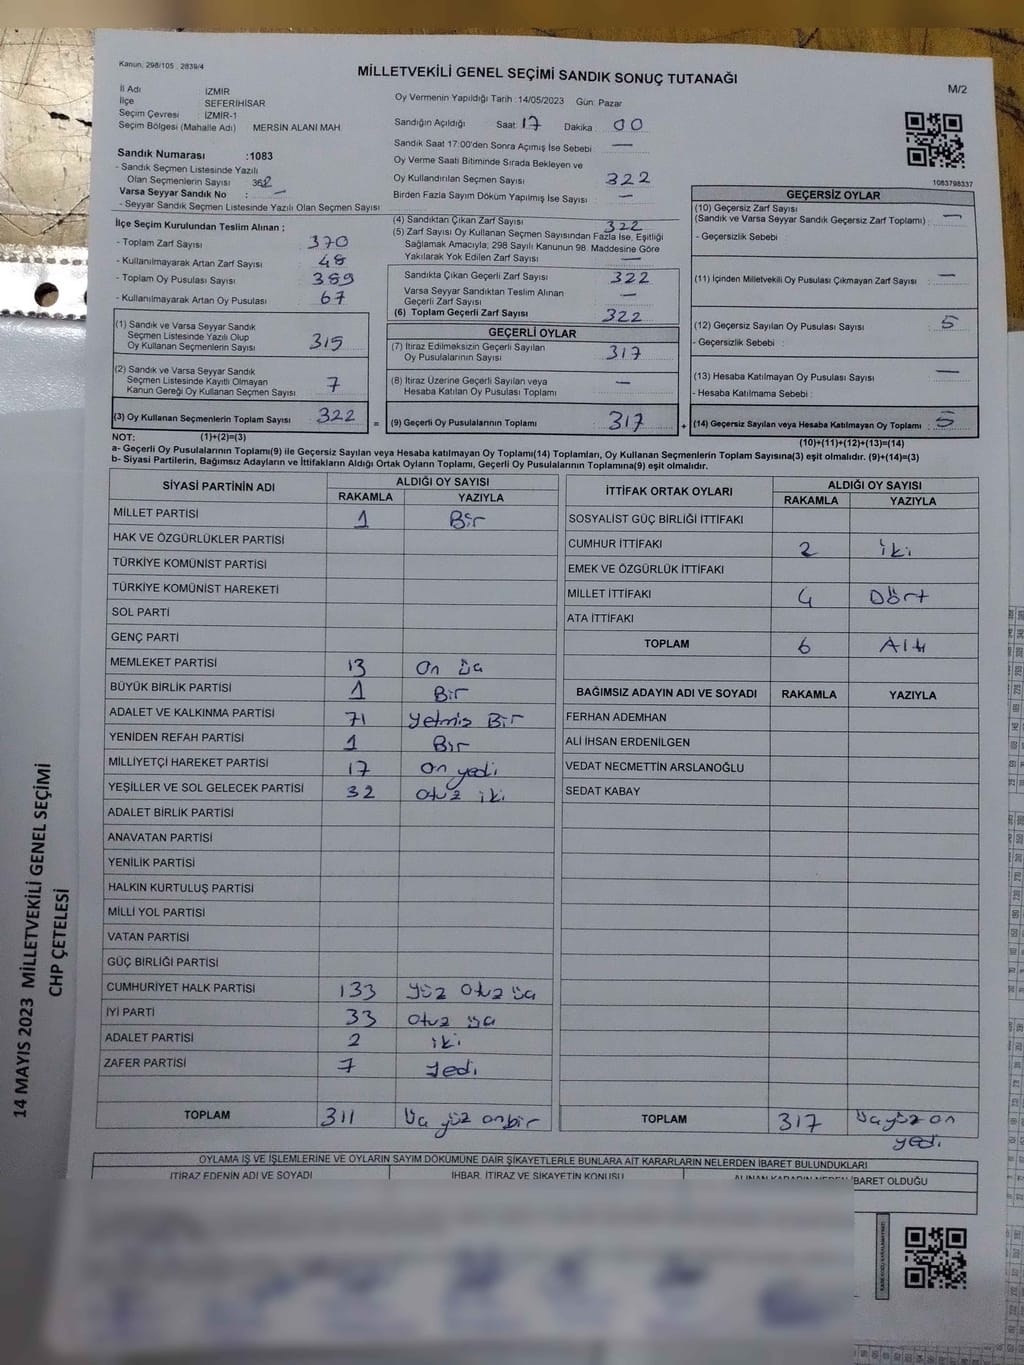 Kanun: 298/105 , 2839/4
MİLLETVEKİLİ GENEL SEÇİMİ SANDIK SONUÇ TUTANAĞI
M/2
İl Adı İZMİR
İlçe SEFERİHİSAR
Seçim Çevresi İZMİR-1
Seçim Bölgesi (Mahalle Adı) MERSİN ALANI MAH
Oy Vermenin Yapıldığı Tarih :14/05/2023 Gün: Pazar
Sandığın Açıldığı Saat 17 Dakika 00
Sandık Saat 17:00'den Sonra Açımış İse Sebebi —
Oy Verme Saati Bitiminde Sırada Bekleyen ve
Oy Kullandırılan Seçmen Sayısı 322
Birden Fazla Sayım Döküm Yapılmış İse Sayısı —
Sandık Numarası :1083
- Sandık Seçmen Listesinde Yazılı
Olan Seçmenlerin Sayısı
Varsa Seyyar Sandık No : —
- Seyyar Sandık Seçmen Listesinde Yazılı Olan Seçmen Sayısı
1083798337
İlçe Seçim Kurulundan Teslim Alınan ;
- Toplam Zarf Sayısı 370
- Kullanılmayarak Artan Zarf Sayısı 48
- Toplam Oy Pusulası Sayısı 389
- Kullanılmayarak Artan Oy Pusulası 67
(1) Sandık ve Varsa Seyyar Sandık
Seçmen Listesinde Yazılı Olup
Oy Kullanan Seçmenlerin Sayısı 315
(2) Sandık ve Varsa Seyyar Sandık
Seçmen Listesinde Kayıtlı Olmayan
Kanun Gereği Oy Kullanan Seçmen Sayısı 7
(3) Oy Kullanan Seçmenlerin Toplam Sayısı 322
=
(4) Sandıktan Çıkan Zarf Sayısı 322
(5) Zarf Sayısı Oy Kullanan Seçmen Sayısından Fazla İse, Eşitliği
Sağlamak Amacıyla; 298 Sayılı Kanunun 98. Maddesine Göre
Yakılarak Yok Edilen Zarf Sayısı —
Sandıkta Çıkan Geçerli Zarf Sayısı 322
Varsa Seyyar Sandıktan Teslim Alınan
Geçerli Zarf Sayısı —
(6) Toplam Geçerli Zarf Sayısı 322
GEÇERLİ OYLAR
(7) İtiraz Edilmeksizin Geçerli Sayılan
Oy Pusulalarının Sayısı 317
(8) İtiraz Üzerine Geçerli Sayılan veya
Hesaba Katılan Oy Pusulası Toplamı —
(9) Geçerli Oy Pusulalarının Toplamı 317
+
GEÇERSİZ OYLAR
(10) Geçersiz Zarf Sayısı
(Sandık ve Varsa Seyyar Sandık Geçersiz Zarf Toplamı) : —
- Geçersizlik Sebebi :
(11) İçinden Milletvekili Oy Pusulası Çıkmayan Zarf Sayısı —
(12) Geçersiz Sayılan Oy Pusulası Sayısı 5
- Geçersizlik Sebebi :
(13) Hesaba Katılmayan Oy Pusulası Sayısı —
- Hesaba Katılmama Sebebi :
(14) Geçersiz Sayılan veya Hesaba Katılmayan Oy Toplamı : 5
NOT: (1)+(2)=(3)
(10)+(11)+(12)+(13)=(14)
a- Geçerli Oy Pusulalarının Toplamı(9) ile Geçersiz Sayılan veya Hesaba katılmayan Oy Toplamı(14) Toplamları, Oy Kullanan Seçmenlerin Toplam Sayısına(3) eşit olmalıdır. (9)+(14)=(3)
b- Siyasi Partilerin, Bağımsız Adayların ve İttifakların Aldığı Ortak Oyların Toplamı, Geçerli Oy Pusulalarının Toplamına(9) eşit olmalıdır.
SİYASİ PARTİNİN ADI ALDIĞI OY SAYISI
RAKAMLA YAZIYLA
MİLLET PARTİSİ 1 Bir
HAK VE ÖZGÜRLÜKLER PARTİSİ
TÜRKİYE KOMÜNİST PARTİSİ
TÜRKİYE KOMÜNİST HAREKETİ
SOL PARTİ
GENÇ PARTİ
MEMLEKET PARTİSİ 13 On üç
BÜYÜK BİRLİK PARTİSİ 1 Bir
ADALET VE KALKINMA PARTİSİ 71 Yetmiş Bir
YENİDEN REFAH PARTİSİ 1 Bir
MİLLİYETÇİ HAREKET PARTİSİ 17 On yedi
YEŞİLLER VE SOL GELECEK PARTİSİ 32 Otuz iki
ADALET BİRLİK PARTİSİ
ANAVATAN PARTİSİ
YENİLİK PARTİSİ
HALKIN KURTULUŞ PARTİSİ
MİLLİ YOL PARTİSİ
VATAN PARTİSİ
GÜÇ BİRLİĞİ PARTİSİ
CUMHURİYET HALK PARTİSİ 133 Yüz Otuz üç
İYİ PARTİ 33 Otuz üç
ADALET PARTİSİ 2 iki
ZAFER PARTİSİ 7 Yedi
TOPLAM 311 Üç yüz onbir
İTTİFAK ORTAK OYLARI ALDIĞI OY SAYISI
RAKAMLA YAZIYLA
SOSYALİST GÜÇ BİRLİĞİ İTTİFAKI
CUMHUR İTTİFAKI 2 iki
EMEK VE ÖZGÜRLÜK İTTİFAKI
MİLLET İTTİFAKI 4 Dört
ATA İTTİFAKI
TOPLAM 6 Altı
BAĞIMSIZ ADAYIN ADI VE SOYADI RAKAMLA YAZIYLA
FERHAN ADEMHAN
ALİ İHSAN ERDENİLGEN
VEDAT NECMETTİN ARSLANOĞLU
SEDAT KABAY
TOPLAM 317 Üç yüz on
yedi
OYLAMA İŞ VE İŞLEMLERİNE VE OYLARIN SAYIM DÖKÜMÜNE DAİR ŞİKAYETLERLE BUNLARA AİT KARARLARIN NELERDEN İBARET BULUNDUKLARI
İTİRAZ EDENİN ADI VE SOYADI İHBAR, İTİRAZ VE ŞİKAYETİN KONUSU ALINAN KARARIN NEDEN İBARET OLDUĞU
14 MAYIS 2023 MİLLETVEKİLİ GENEL SEÇİMİ
CHP ÇETELESİ